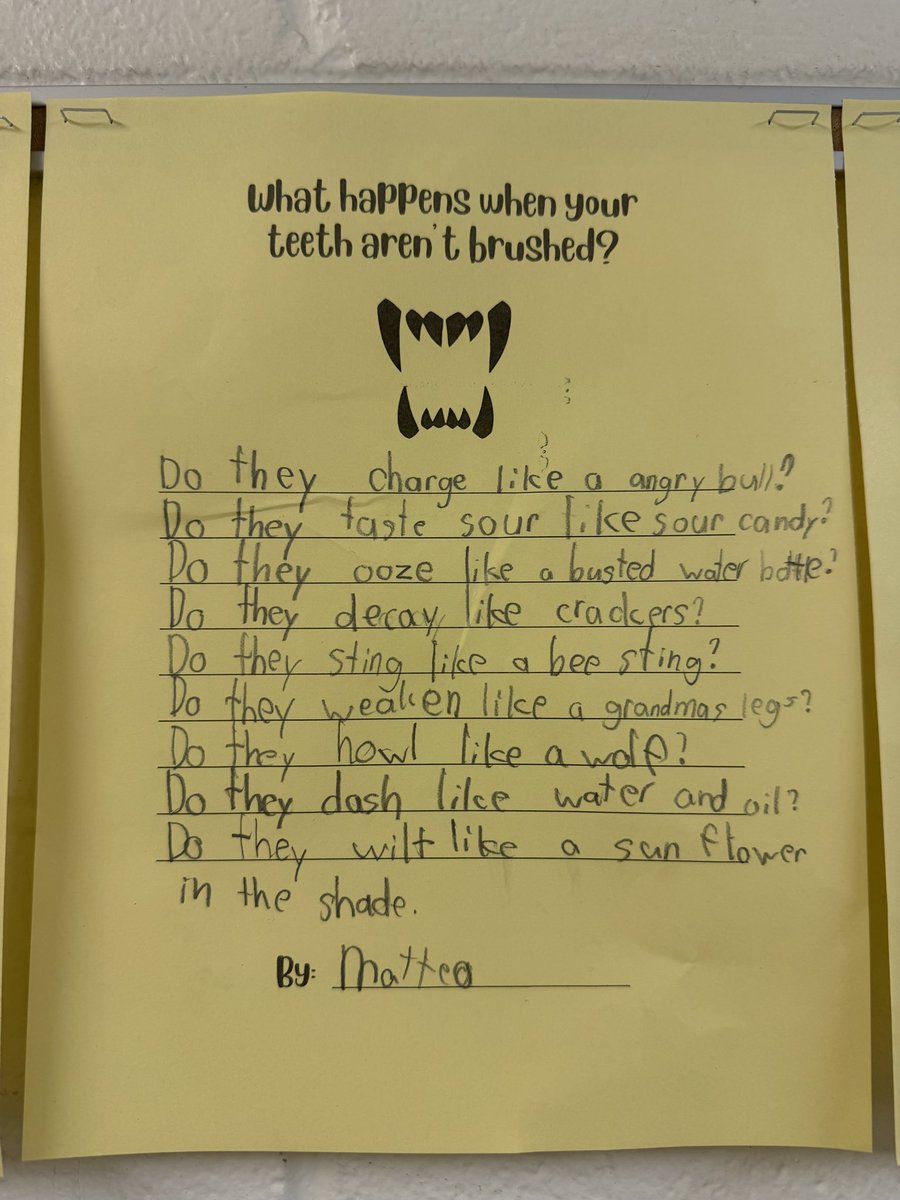 What happens when your
teeth aren't brushed?
Do they charge like a angry bull?
Do they taste sour like sour candy?
Do they ooze like a busted water bottle?
Do they decay like crackers?
Do they sting like a bee sting?
Do they weaken like a grandmas legs?
Do they howl like a wolf?
Do they dash like water and oil?
Do they wilt like a sun flower
in the shade.
By: Matteo